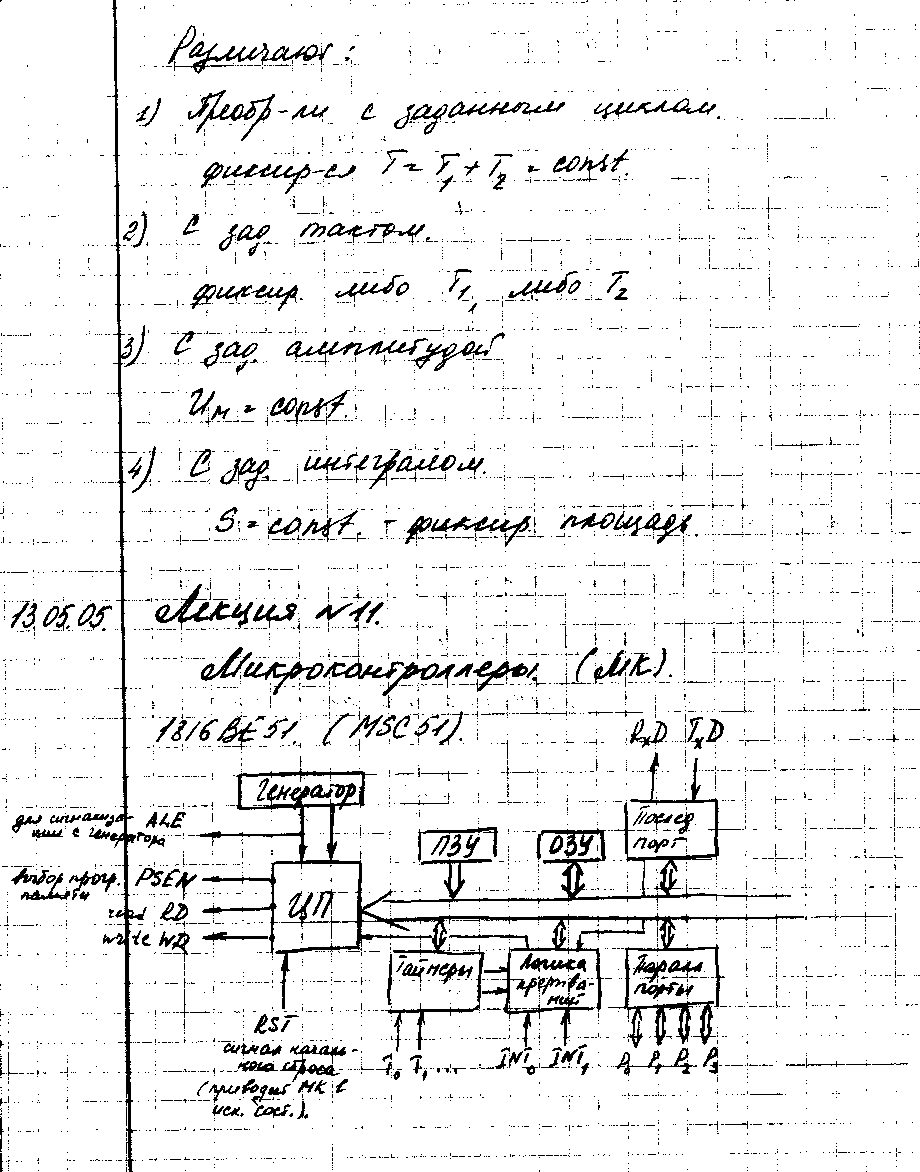 Различают:
1) Преобр-ли с заданным циклом.
фиксир-ся T = T₁ + T₂ = const.
2) С зад. тактом.
фиксир. либо T₁, либо T₂
3) С зад. амплитудой
Uм = const.
4) С зад. интегралом.
S = const. - фиксир. площадь.
13.05.05. Лекция №11.
Микроконтроллеры. (МК).
1816ВЕ51. (MSC51).
RxD TxD
Генератор
для сигнализа-
ции с генератора
ALE
ПЗУ
ОЗУ
Послед.
порт
выбор прогр.
памяти
PSEN
ЦП
read RD
write WR
Таймеры
Логика
прерыва-
ний
Паралл.
порты
RST
сигнал началь-
ного сброса
(приводит МК в
исх. сост.).
T₀ T₁ ...
INT₀ INT₁
P₀ P₁ P₂ P₃